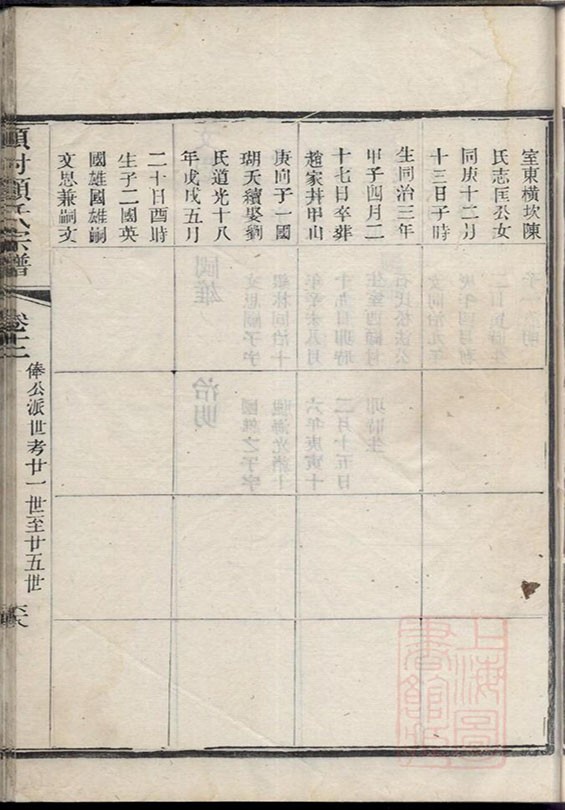 室東橫坎陳
氏志匡公女
同庚十二月
十三日子時
生同治三年
甲子四月二
十七日卒葬
趙家井甲山
庚向子一國
瑚天續娶劉
氏道光十八
年戊戌五月
二十日酉時
生子二國英
國雄國雄嗣
文思兼嗣文
項村顧氏宗譜
卷十二
俸公派世考廿一世至廿五世
上海圖
書館藏